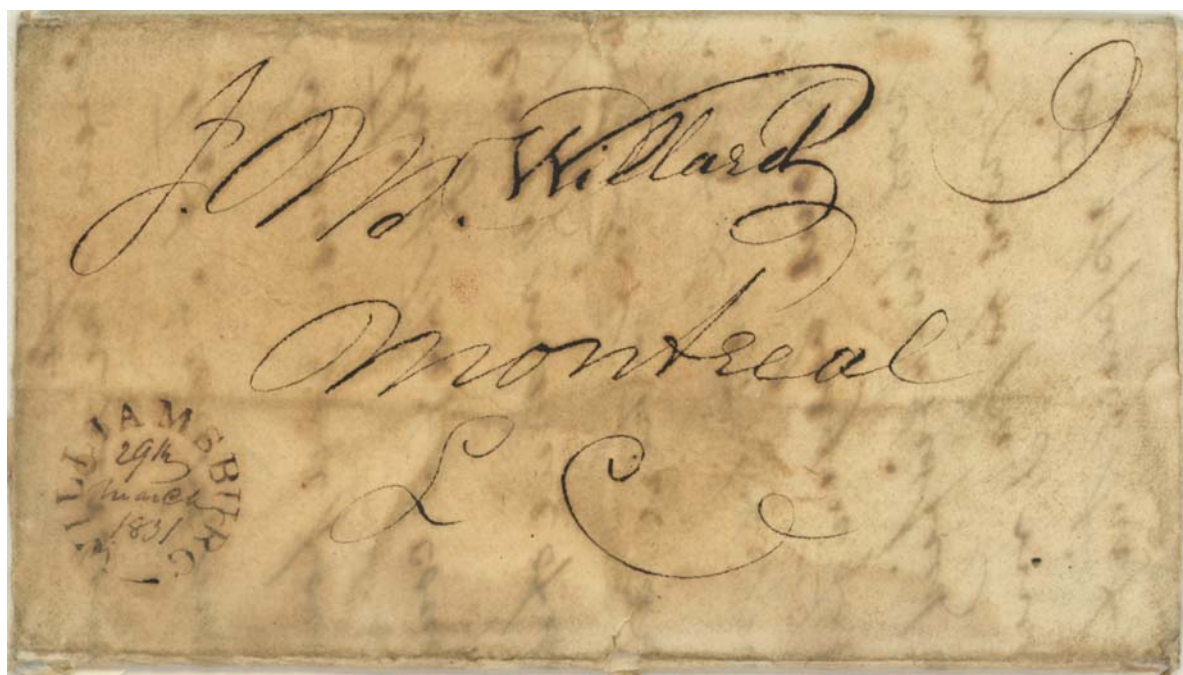 J. M. Willard 9
Montreal
L C
WILLIAMSBURG
29th
March
1831